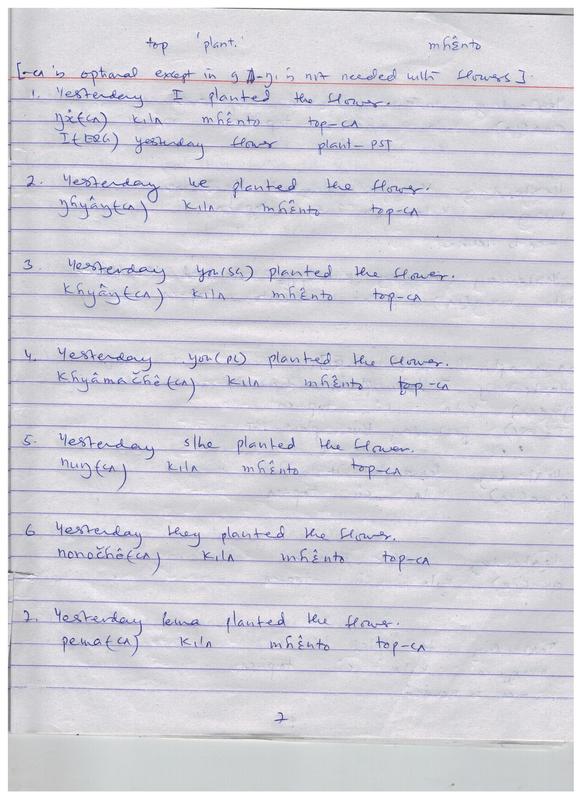 top 'plant.' mɦɛ̂nto
[-cʌ is optional except in 9 -ŋ. is not needed with flowers]
1. Yesterday I planted the flower.
(cʌ) kilʌ mɦɛ̂nto top-cʌ
I(ERG) yesterday flower plant-PST
2. Yesterday we planted the flower.
ŋɦyâŋ(cʌ) kilʌ mɦɛ̂nto top-cʌ
3. Yesterday you(SG) planted the flower.
kɦyâŋ(cʌ) kilʌ mɦɛ̂nto top-cʌ
4. Yesterday you(PL) planted the flower.
kɦyâmačɦê(cʌ) kilʌ mɦɛ̂nto top-cʌ
5. Yesterday s/he planted the flower.
nuŋ(cʌ) kilʌ mɦɛ̂nto top-cʌ
6 Yesterday they planted the flower.
nonočɦê(cʌ) kilʌ mɦɛ̂nto top-cʌ
7. Yesterday Pema planted the flower.
pema(cʌ) kilʌ mɦɛ̂nto top-cʌ
7